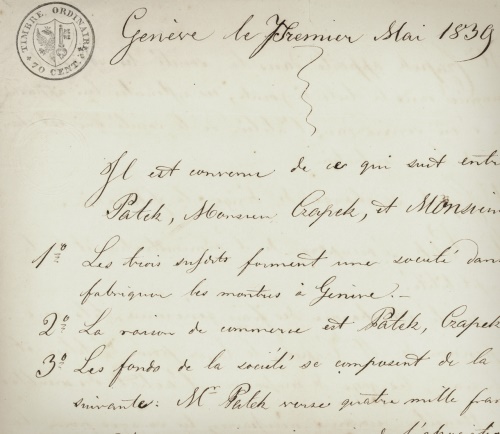 TIMBRE. ORDINAIRE
70 CENT.
Genève le Premier Mai 1839
Il est convenu de ce qui suit entr
Patek, Monsieur Czapek, et Monsieur
1º Les trois susdits forment une société dans
fabriquer les montres à Genève.—
2º La raison de commerce est Patek, Czapek
3º Les fonds de la société se composent de la
suivante: Mr Patek verse quatre mille fran